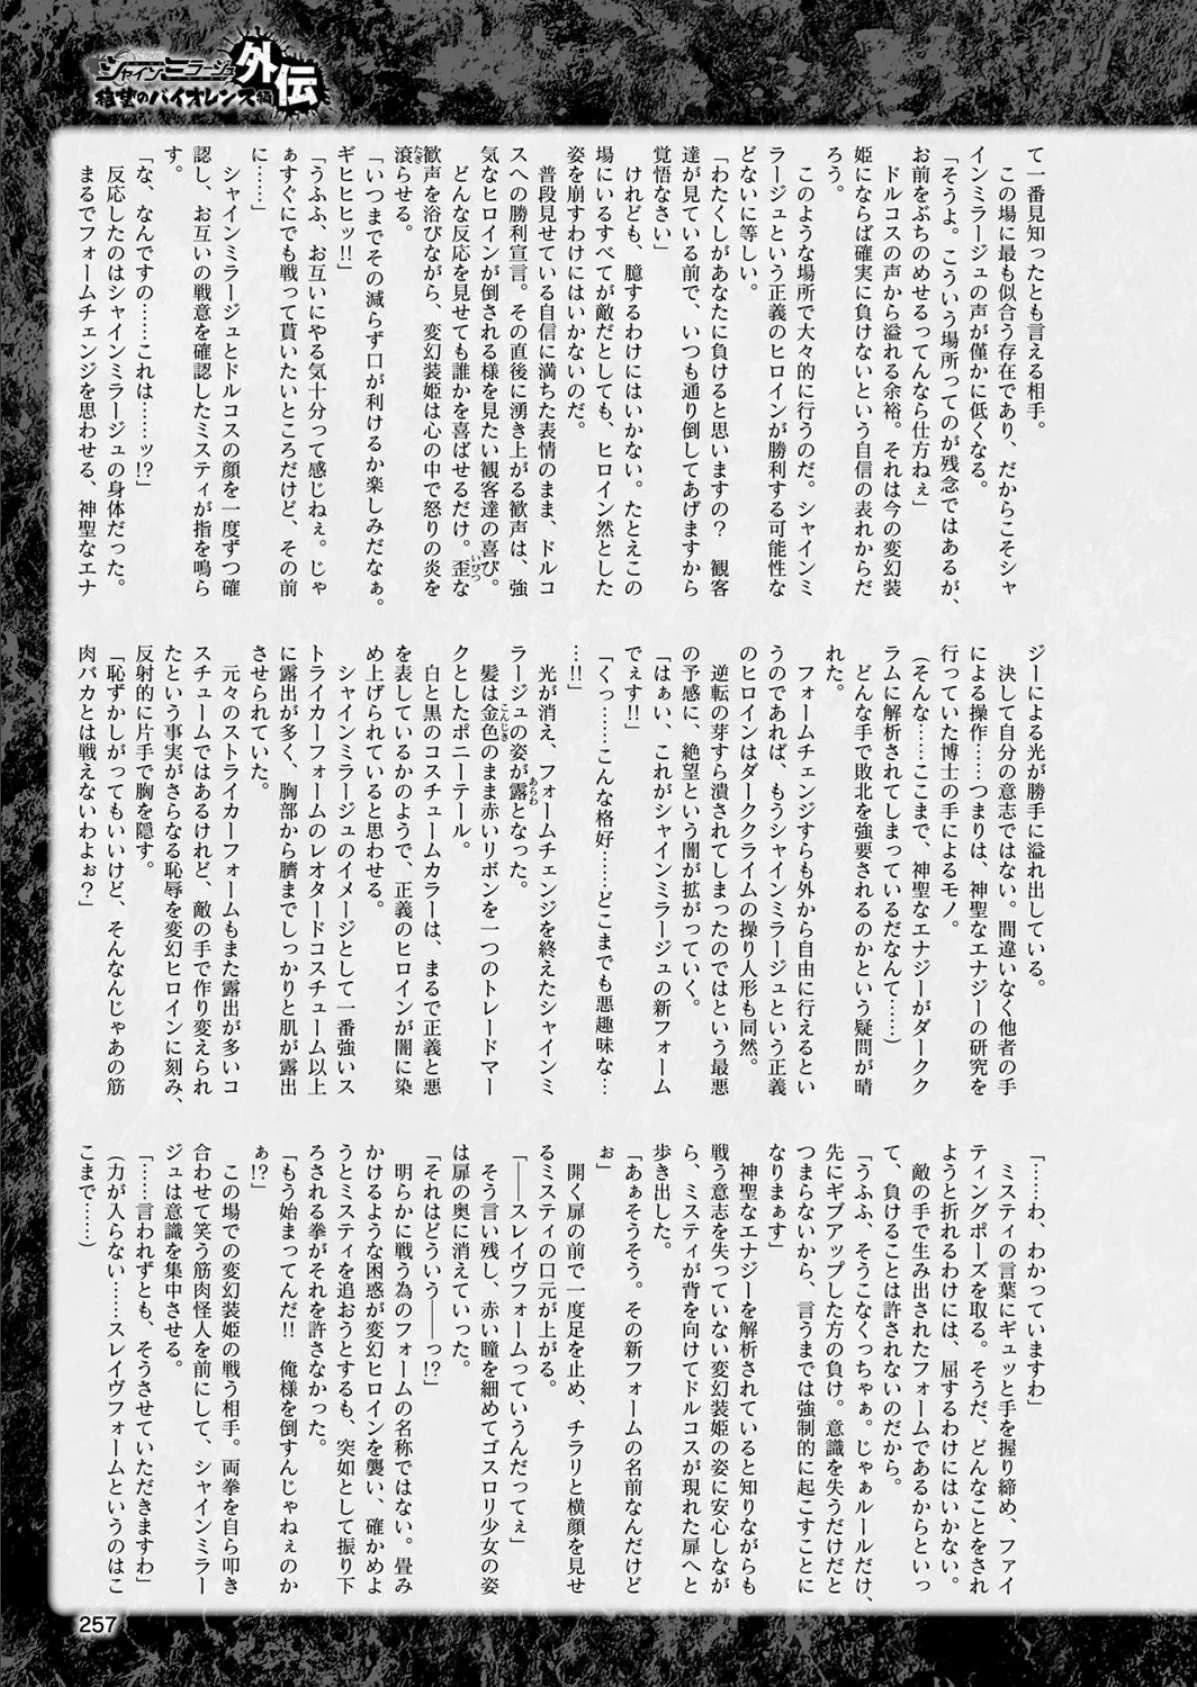 シャインミラージュ
外伝
絶望のバイオレンス編
て一番見知ったとも言える相手。
この場に最も似合う存在であり、だからこそシャ
インミラージュの声が僅かに低くなる。
「そうよ。こういう場所ってのが残念ではあるが、
お前をぶちのめせるってんなら仕方ねぇ」
ドルコスの声から溢れる余裕。それは今の変幻装
姫にならば確実に負けないという自信の表れからだ
ろう。
このような場所で大々的に行うのだ。シャインミ
ラージュという正義のヒロインが勝利する可能性な
どないに等しい。
「わたくしがあなたに負けると思いますの？　観客
達が見ている前で、いつも通り倒してあげますから
覚悟なさい」
けれども、臆するわけにはいかない。たとえこの
場にいるすべてが敵だとしても、ヒロイン然とした
姿を崩すわけにはいかないのだ。
普段見せている自信に満ちた表情のまま、ドルコ
スへの勝利宣言。その直後に湧き上がる歓声は、強
気なヒロインが倒される様を見たい観客達の喜び。
どんな反応を見せても誰かを喜ばせるだけ。歪な
歓声を浴びながら、変幻装姫は心の中で怒りの炎を
滾らせる。
「いつまでその減らず口が利けるか楽しみだなぁ。
ギヒヒヒッ!!」
「うふふ、お互いにやる気十分って感じねぇ。じゃ
ぁすぐにでも戦って貰いたいところだけど、その前
に……」
シャインミラージュとドルコスの顔を一度ずつ確
認し、お互いの戦意を確認したミスティが指を鳴ら
す。
「な、なんですの……これは……ッ!?」
反応したのはシャインミラージュの身体だった。
まるでフォームチェンジを思わせる、神聖なエナ
ジーによる光が勝手に溢れ出している。
決して自分の意志ではない。間違いなく他者の手
による操作……つまりは、神聖なエナジーの研究を
行っていた博士の手によるモノ。
（そんな……ここまで、神聖なエナジーがダークク
ラムに解析されてしまっているだなんて……）
どんな手で敗北を強要されるのかという疑問が晴
れた。
フォームチェンジすらも外から自由に行えるとい
うのであれば、もうシャインミラージュという正義
のヒロインはダーククライムの操り人形も同然。
逆転の芽すら潰されてしまったのではという最悪
の予感に、絶望という闇が拡がっていく。
「はぁい、これがシャインミラージュの新フォーム
でぇす!!」
「くっ……こんな格好……どこまでも悪趣味な…
…!!」
光が消え、フォームチェンジを終えたシャインミ
ラージュの姿が露となった。
髪は金色のまま赤いリボンを一つのトレードマー
クとしたポニーテール。
白と黒のコスチュームカラーは、まるで正義と悪
を表しているかのようで、正義のヒロインが闇に染
め上げられていると思わせる。
シャインミラージュのイメージとして一番強いス
トライカーフォームのレオタードコスチューム以上
に露出が多く、胸部から臍までしっかりと肌が露出
させられていた。
元々のストライカーフォームもまた露出が多いコ
スチュームではあるけれど、敵の手で作り変えられ
たという事実がさらなる恥辱を変幻ヒロインに刻み、
反射的に片手で胸を隠す。
「恥ずかしがってもいいけど、そんなんじゃあの筋
肉バカとは戦えないわよぉ？」
「……わ、わかっていますわ」
ミスティの言葉にギュッと手を握り締め、ファイ
ティングポーズを取る。そうだ、どんなことをされ
ようと折れるわけには、屈するわけにはいかない。
敵の手で生み出されたフォームであるからといっ
て、負けることは許されないのだから。
「うふふ、そうこなくっちゃぁ。じゃぁルールだけ、
先にギブアップした方の負け。意識を失うだけだと
つまらないから、言うまでは強制的に起こすことに
なりまぁす」
神聖なエナジーを解析されていると知りながらも
戦う意志を失っていない変幻装姫の姿に安心しなが
ら、ミスティが背を向けてドルコスが現れた扉へと
歩き出した。
「あぁそうそう。その新フォームの名前なんだけど
ぉ」
開く扉の前で一度足を止め、チラリと横顔を見せ
るミスティの口元が上がる。
「――スレイヴフォームっていうんだってぇ」
そう言い残し、赤い瞳を細めてゴスロリ少女の姿
は扉の奥に消えていった。
「それはどういう――っ!?」
明らかに戦う為のフォームの名称ではない。畳み
かけるような困惑が変幻ヒロインを襲い、確かめよ
うとミスティを追おうとするも、突如として振り下
ろされる拳がそれを許さなかった。
「もう始まってんだ!!　俺様を倒すんじゃねぇのか
ぁ!?」
この場での変幻装姫の戦う相手。両拳を自ら叩き
合わせて笑う筋肉怪人を前にして、シャインミラー
ジュは意識を集中させる。
「……言われずとも、そうさせていただきますわ」
（力が入らない……スレイヴフォームというのはこ
こまで……）
257